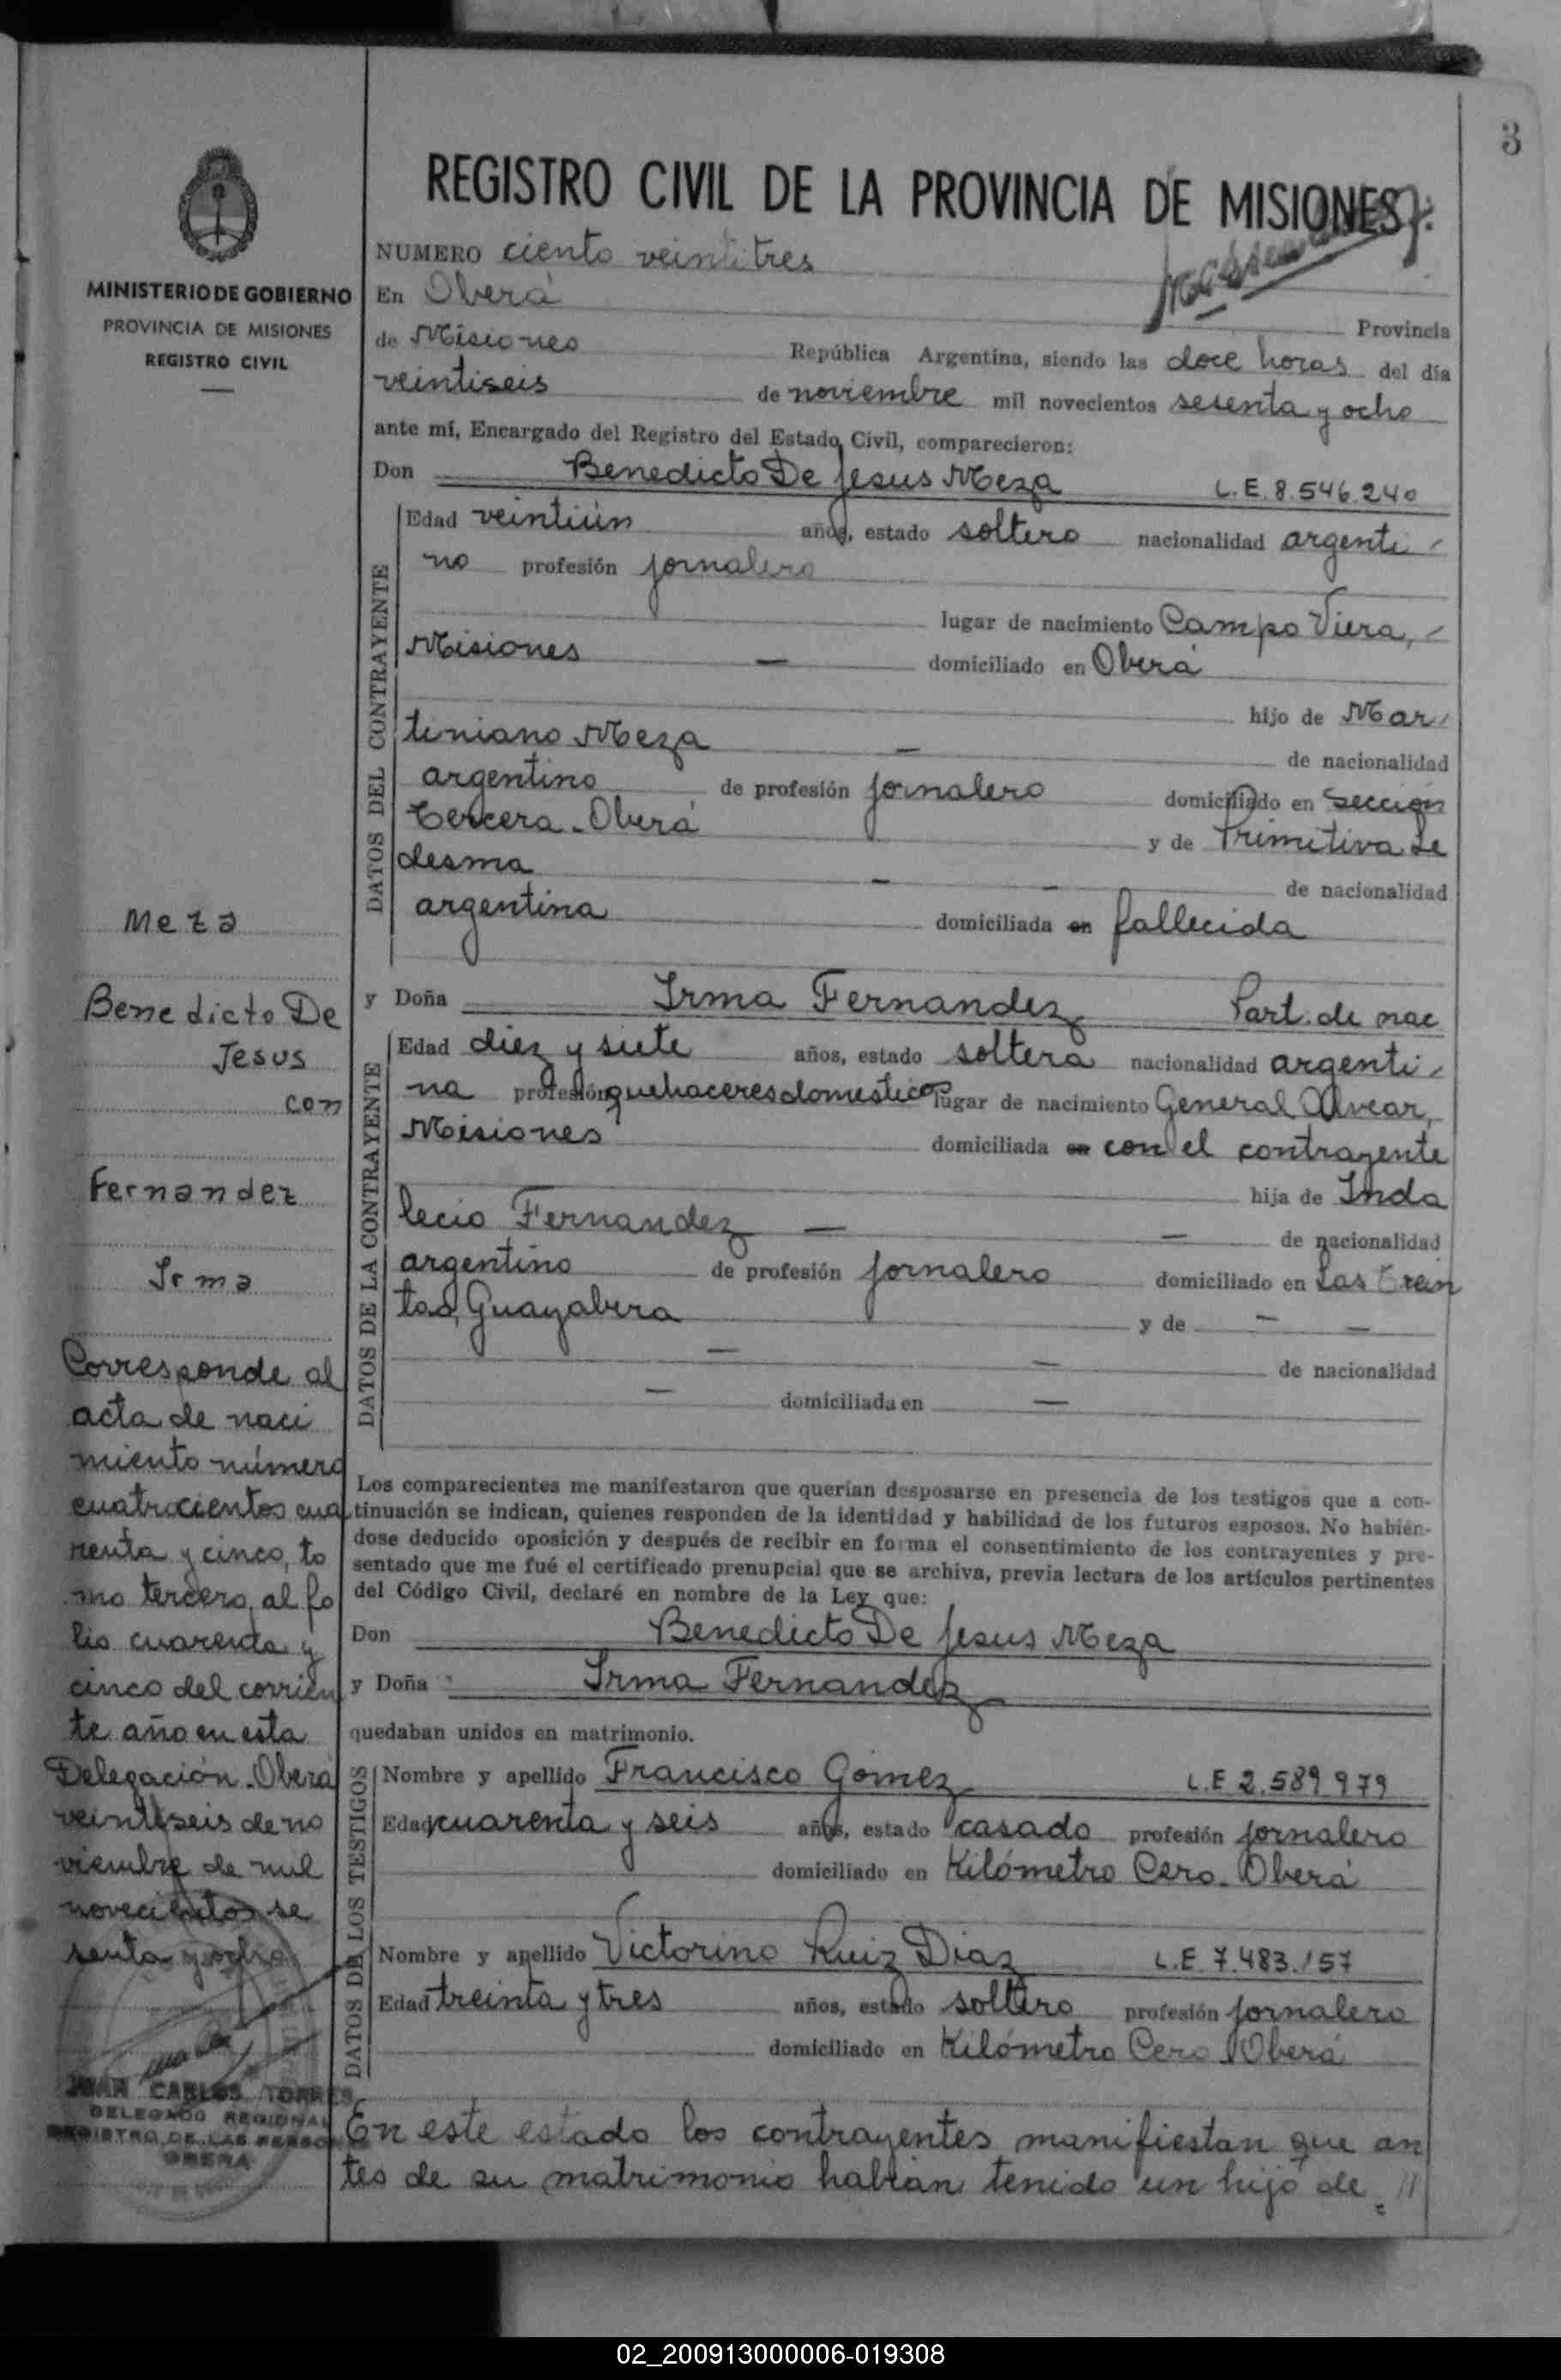 3
REGISTRO CIVIL DE LA PROVINCIA DE MISIONES
MINISTERIO DE GOBIERNO
PROVINCIA DE MISIONES
REGISTRO CIVIL
NUMERO ciento veintitres
En Oberá
Provincia
de Misiones República Argentina, siendo las doce horas del día
veintiseis de noviembre mil novecientos sesenta y ocho
ante mí, Encargado del Registro del Estado Civil, comparecieron:
Don Benedicto De Jesus Meza L.E. 8.546.240
DATOS DEL CONTRAYENTE
Edad veintiún años, estado soltero nacionalidad argenti
no profesión jornalero
lugar de nacimiento Campo Viera,
Misiones — domiciliado en Oberá
hijo de Mar
tiniano Meza —
de nacionalidad
argentino de profesión jornalero domiciliado en Sección
Tercera - Oberá y de Primitiva Le
desma — —
de nacionalidad
argentina domiciliada en fallecida
y Doña Irma Fernandez Part. de nac
DATOS DE LA CONTRAYENTE
Edad diez y siete años, estado soltera nacionalidad argenti
na profesión quehaceres domesticos lugar de nacimiento General Alvear,
Misiones domiciliada en con el contrayente
hija de Inda
lecio Fernandez — —
de nacionalidad
argentino de profesión jornalero domiciliado en Las Trein
tas, Guayabera y de — —
— — de nacionalidad
— domiciliada en —
Los comparecientes me manifestaron que querían desposarse en presencia de los testigos que a con-
tinuación se indican, quienes responden de la identidad y habilidad de los futuros esposos. No habién-
dose deducido oposición y después de recibir en forma el consentimiento de los contrayentes y pre-
sentado que me fué el certificado prenupcial que se archiva, previa lectura de los artículos pertinentes
del Código Civil, declaré en nombre de la Ley que:
Don Benedicto De Jesus Meza
y Doña Irma Fernandez
quedaban unidos en matrimonio.
DATOS DE LOS TESTIGOS
Nombre y apellido Francisco Gómez L.E 2.589.979
Edad cuarenta y seis años, estado casado profesión jornalero
domiciliado en Kilómetro Cero - Oberá
Nombre y apellido Victorino Ruiz Diaz L.E. 7.483.157
Edad treinta y tres años, estado soltero profesión jornalero
domiciliado en Kilómetro Cero Oberá
En este estado los contrayentes manifiestan que an
tes de su matrimonio habían tenido un hijo de //
Meza
Benedicto De
Jesus
con
Fernandez
Irma
Corresponde al
acta de naci
miento número
cuatrocientos cua
renta y cinco, to
mo tercero, al fo
lio cuarenta y
cinco del corrien
te año en esta
Delegación - Oberá
veintiseis de no
viembre de mil
novecientos se
senta y ocho
JUAN CARLOS TORRES
DELEGADO REGIONAL
REGISTRO DE LAS PERSONAS
OBERA
02_200913000006-019308